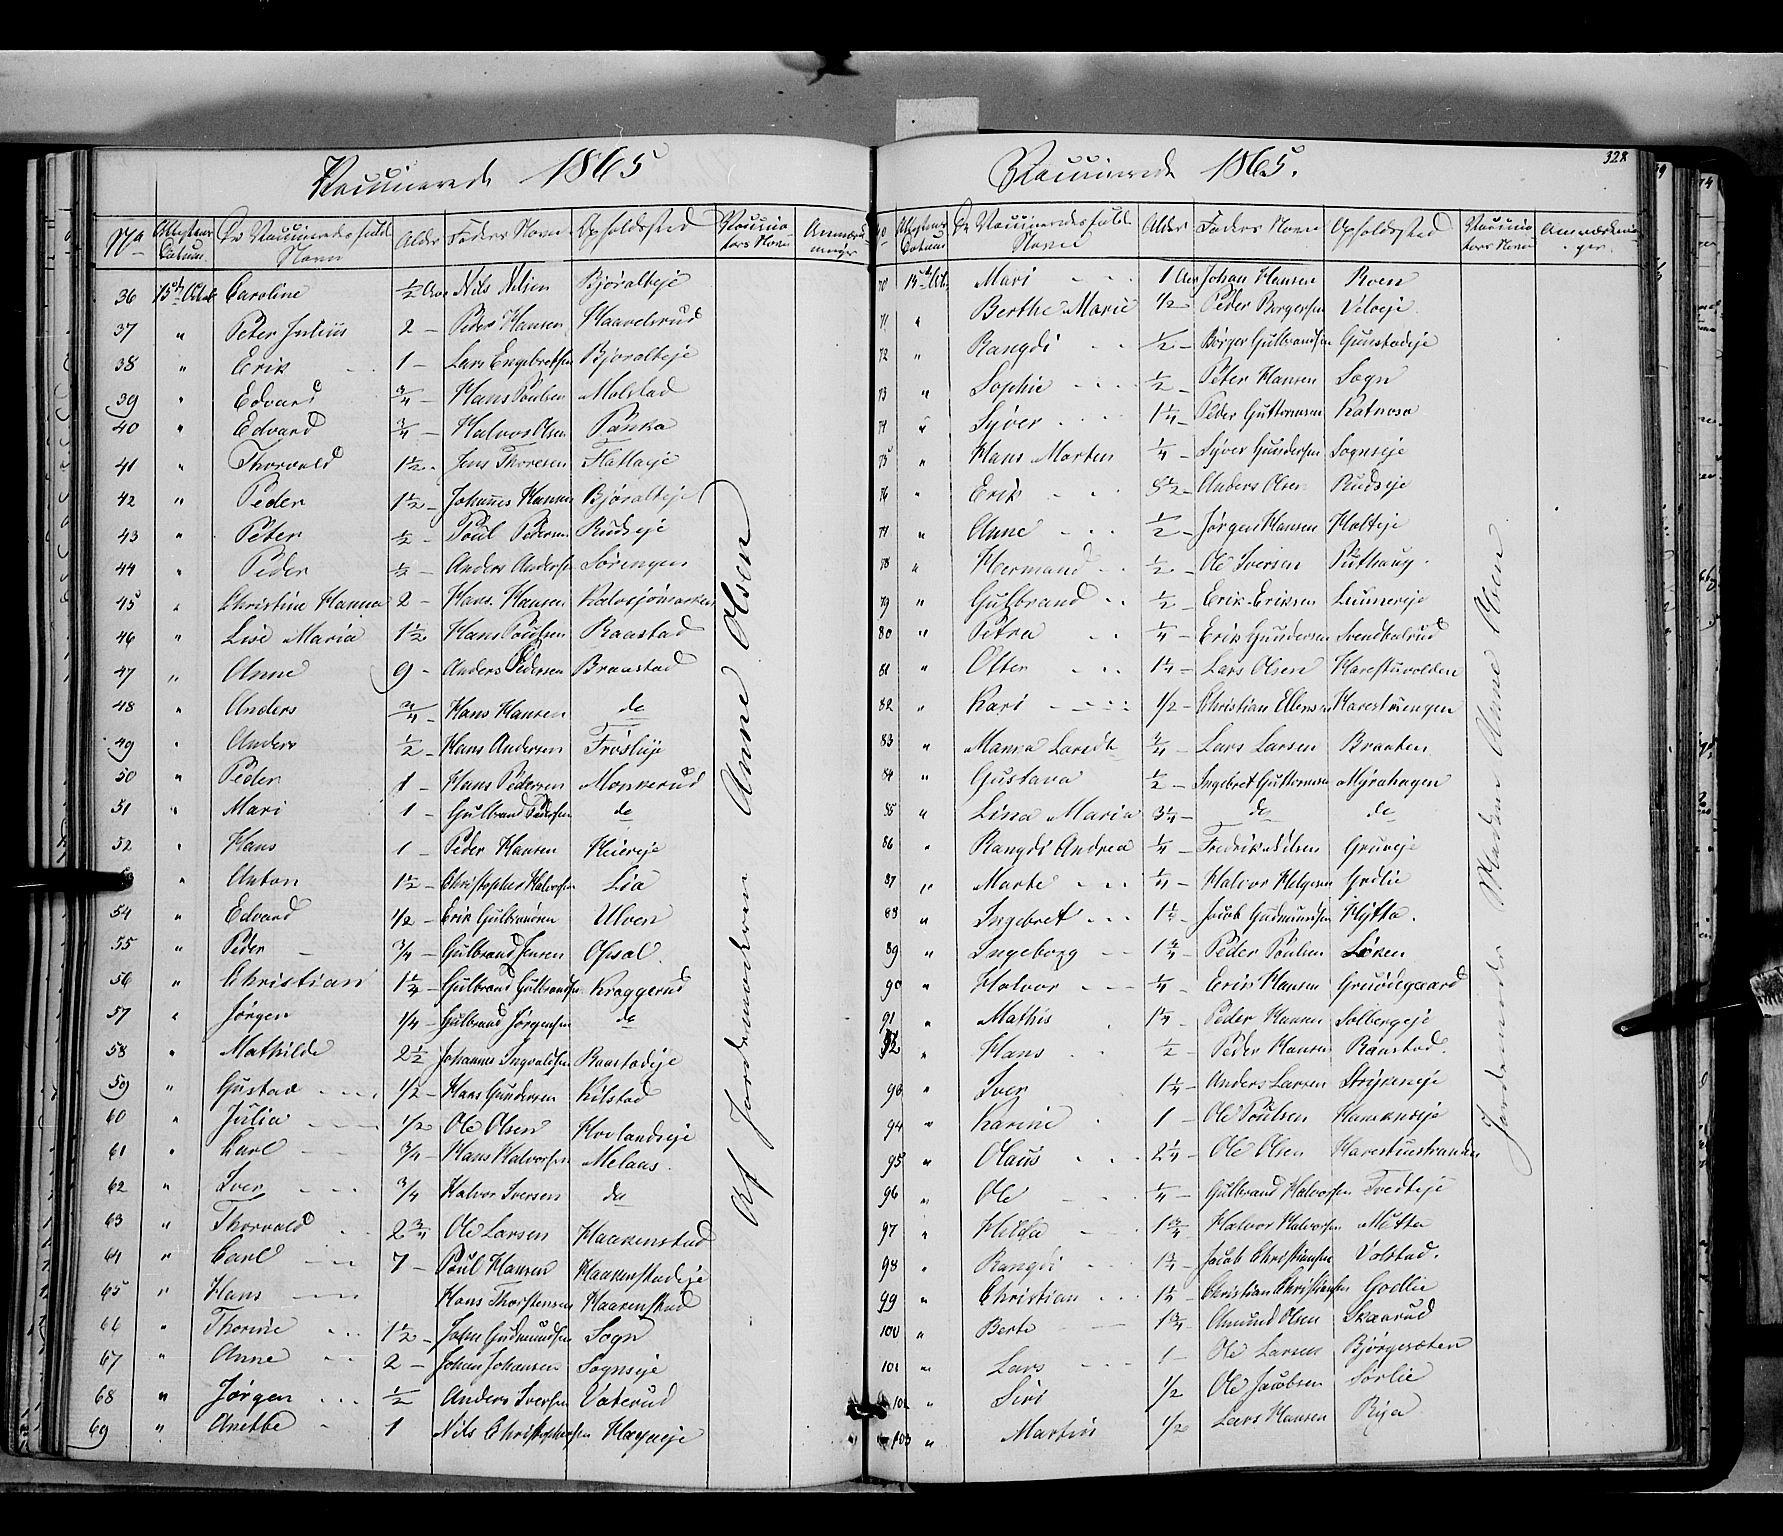 Vaccinerede 1865
No Attestens Datum De Vaccineredes fulde Navn Alder Faders Navn Opholdsted Vaccinators Navn Anmærkninger
36 15de Octob Caroline ½ Aar Nils Nilsen Bjøralteje
37 " Peter Julius 2 - Peder Hansen Haavelsrud
38 " Erik 1 - Lars Engebretsen Bjøralteje
39 " Edvard ¾ - Hans Poulsen Molstad
40 " Edvard ¾ - Halvor Olsen Panka
41 " Thorvald 1½ - Jens Thoresen Flattaeje
42 " Peder 1½ - Johannes Hansen Bjøralteje
43 " Peter ½ - Poul Pedersen Rudseje
44 " Peder ½ - Anders Andersen Sørengen
45 " Christine Hanna 2 - Hans Hansen Kalvsjømarken
46 " Lise Maria 1½ Hans Poulsen Raastad
47 " Anne 9 - Anders Pedersen Branstad
48 " Anders ¾ - Hans Hansen do
49 " Anders ½ - Hans Andersen Frøslieje
50 " Peder 1 - Hans Pedersen Monkerud
51 " Mari 1 - Gulbrand Pedersen do
52 " Hans 1 - Peder Hansen Heiereje
" Anton 1½ - Christopher Halvorsen Lia
54 " Edvard ½ - Erik Gulbrandsen Ulven
55 " Peder - ¾ - Gulbrand Jensen Opsal.
56 " Christian 1¼ - Gulbrand Gulbrandsen Kraggerud
57 " Jørgen ¼ - Gulbrand Jørgensen do
58 " Mathilde 2½ - Johannes Ingvaldsen Raastadeje
59 " Gustav ½ - Hans Gundersen Kilstad
60 " Julia ½ Ole Olsen Hovlandseje
61 " Carl ¾ - Hans Halvorsen Melaas
62 " Iver ¾ - Halvor Iversen do
63 " Thorvald 2¾ Ole Larsen Haakenstad
64 " Carl 7 - Poul Hansen Haakenstadeje
65 " Hans Hans Thorstensen Haakenstad
66 " Thorine 1½ - John Gudmundsen Sogn
67 " Anne 2 - Johan Johansen Sognseje
68 " Jørgen ½ - Anders Iversen Vaterud
69 " Anethe 1 Nils Christophersen Høyneje
Af Jordemoderen Anne Olsen
Vaccinerede 1865.
328
No Attestens Datum De Vaccineredes fulde Navn Alder Faders Navn Opholdsted Vaccinators Navn Anmærkninger.
70 15de Oct. Mari 1 Aar Johan Hansen Roen
71 " Berthe Marie ½ Peder Borgersen Velseje
72 " Rangdi ½ - Børger Gulbrandsen Gunstadeje
73 " Sophie ½ - Peter Hansen Sogn
74 " Syver 1¼ - Peder Guttormsen Katnosa
75 " Hans Morten ¼ - Syver Gundersen Sognseje
76 " Erik 8½ - Anders Olsen Rudseje
77 " Anne ½ - Jørgen Hansen Holteje
78 " Hermand ½ - Ole Iversen Puthaug
79 " Gulbrand ½ - Erik Eriksen Lunnereje
80 " Petra ¼ - Erik Gundersen Svendbalrud
81 " Otter 1¼ - Lars Olsen Harestuvolden
82 " Kari ½ - Christian Ellensen Harestuengen
83 " Manna Laredte ¾ - Lars Larsen Braaten
84 " Gustava ½ - Ingebret Guttormsen Myrahagen
85 " Lina Maria 3¼ - do do
86 " Rangdi Andrea ¼ - Fredrik Nilsen Grueje
87 " Marte ¼ - Halvor Helgesen Grølie
88 " Ingebret 1½ - Jacob Gudmundsen Hytta.
89 " Ingeborg 1¾ - Peder Poulsen Løken
90 " Halvor ¼ - Erik Hansen Gruødegaard
91 " Mathis 1¼ - Peder Hansen Solbergeje
92 " Hans ½ - Peder Hansen Raastad.
93 " Iver 1¼ - Anders Larsen Strykeneje
94 " Karine 1 - Ole Poulsen
95 " Olaus 2¼ - Ole Olsen Harestuestranden
96 " Ole ¼ - Gulbrand Halvorsen Tvedteje
97 " Helga 1¾ - Halvor Halvorsen Mutta
98 " Rangdi 1¼ - Jacob Christiansen Volstad.
99 " Christian 1½ - Christian Christiansen Godlie
100 " Berte 1¾ - Amund Olsen Skaarud
101 " Lars 1 - Ole Larsen Bjørgesæten
102 " Siri ½ Ole Jacobsen Sørlie
103 " Martin ½ Lars Hansen Rya
Jordemoder Madam Anne Olsen